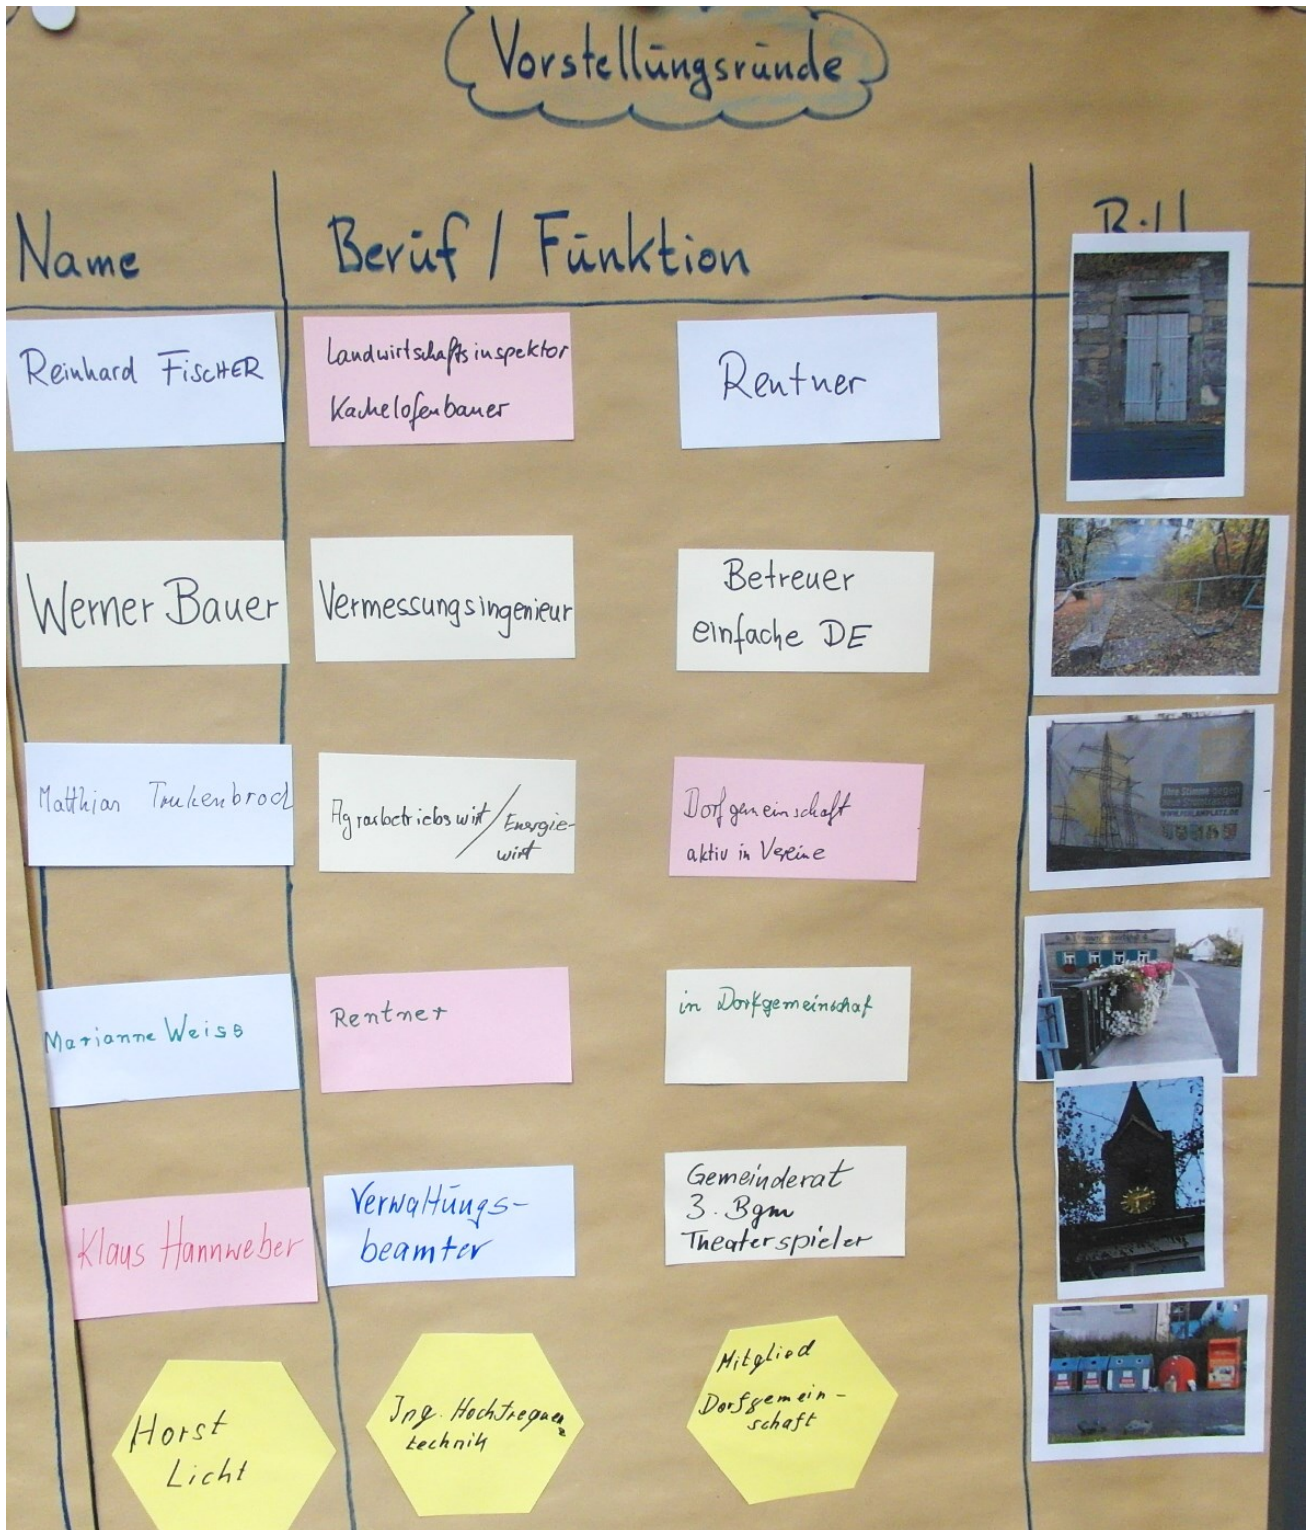 Vorstellungsrunde
Name
Beruf / Funktion
Reinhard FiscHER
Landwirtschaftsinspektor
Kachelofenbauer
Rentner
Werner Bauer
Vermessungsingenieur
Betreuer
einfache DE
Matthias Truckenbrod
Agrarbetriebswirt / Energie-
wirt
Dorfgemeinschaft
aktiv in Vereine
Ihre Stimme gegen
neue Stromtrassen!
Marianne Weiss
Rentner
in Dorfgemeinschaf
Klaus Hannweber
Verwaltungs-
beamter
Gemeinderat
3. Bgm
Theaterspieler
Horst
Licht
Ing. Hochfrequenz
technik
Mitglied
Dorfgemein-
schaft